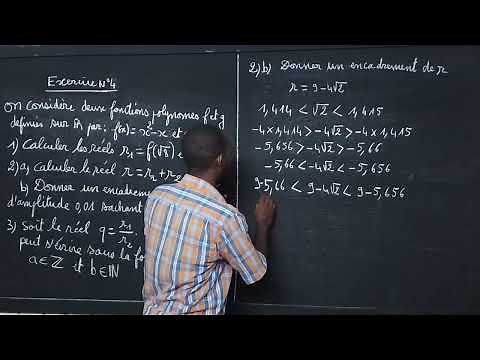 Exercice N°4
On considère deux fonctions polynomes f et g
définies sur ℝ par: f(x) = x² - x et
1) Calculer les réels r₁ = f(√8) e
2) a) Calculer le réel r = r₁ + r₂
b) Donner un encadreme
d'amplitude 0,01 sachant
3) Soit le réel q = r₁/r₂
peut s'écrire sous la fo
a ∈ ℤ et b ∈ ℕ
2) b) Donner un encadrement de r
r = 9 - 4√2
1,414 < √2 < 1,415
-4×1,414 > -4√2 > -4×1,415
-5,656 > -4√2 > -5,66
-5,66 < -4√2 < -5,656
9-5,66 < 9-4√2 < 9-5,656